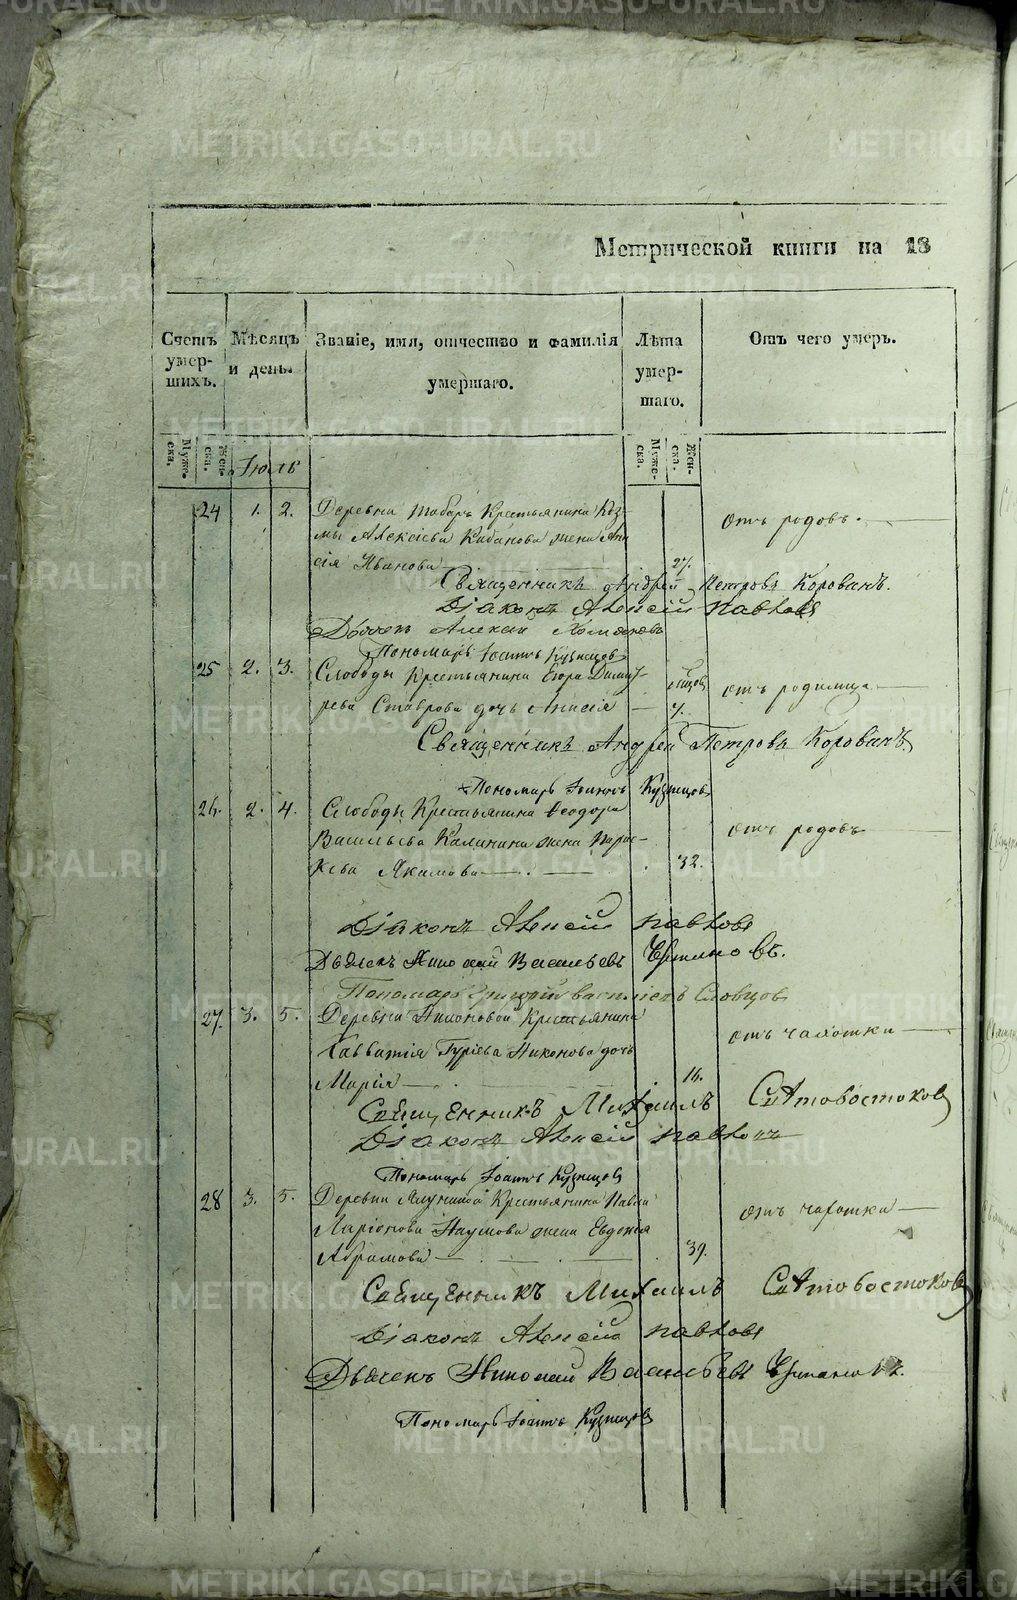 Метрической книги на 18
Счетъ умер-шихъ.
Мѣсяцъ и день.
Званіе, имя, отчество и фамилія умершаго.
Лѣта умер-шаго.
Отъ чего умеръ.
Муже-ска.
Жен-ска.
Муже-ска.
Жен-ска.
Іюль
24 1. 2. Деревни Таборъ Крестьянина Коз-
мы Алексіева Кабанова жена Ана
сія Иванова 27. отъ родовъ.
Священникъ Андрей Петровъ Корованъ.
Діаконъ Алексій Павловъ
Дьячекъ Алексей Хомяковъ
Пономарь Іоаннъ Кузнецовъ
25 2. 3. Слободы Крестьянина Егора Дмит
рева Ставрова дочь Анисія мѣсяцов 4. отъ родимца
Священникъ Андрей Петровъ Корованъ
Пономарь Іоаннъ Кузнецовъ
26. 2. 4. Слободы Крестьянина Феодора
Васильева Калинина жена Парас-
кева Якимова 32. отъ родовъ
Діаконъ Алексій Павловъ
Дьячекъ Николай Васильевъ
Пономарь Григорій Васильевъ Словцовъ
27. 3. 5. Деревни Никоновой Крестьянина
Савватія Гуріева Никонова дочь
Марія 16. отъ чахотки
Священникъ Михаилъ Святовостоковъ
Діаконъ Алексій Павловъ
Пономарь Іоаннъ Кузнецовъ
28 3. 5. Деревни Крестьянина Павла
Ларіонова Наумова жена Евдокія
Абрамова 39. отъ чахотки
Священникъ Михаилъ Святовостоковъ
Діаконъ Алексій Павловъ
Дьячекъ Николай Васильевъ
Пономарь Іоаннъ Кузнецовъ
METRIKI.GASO-URAL.RU